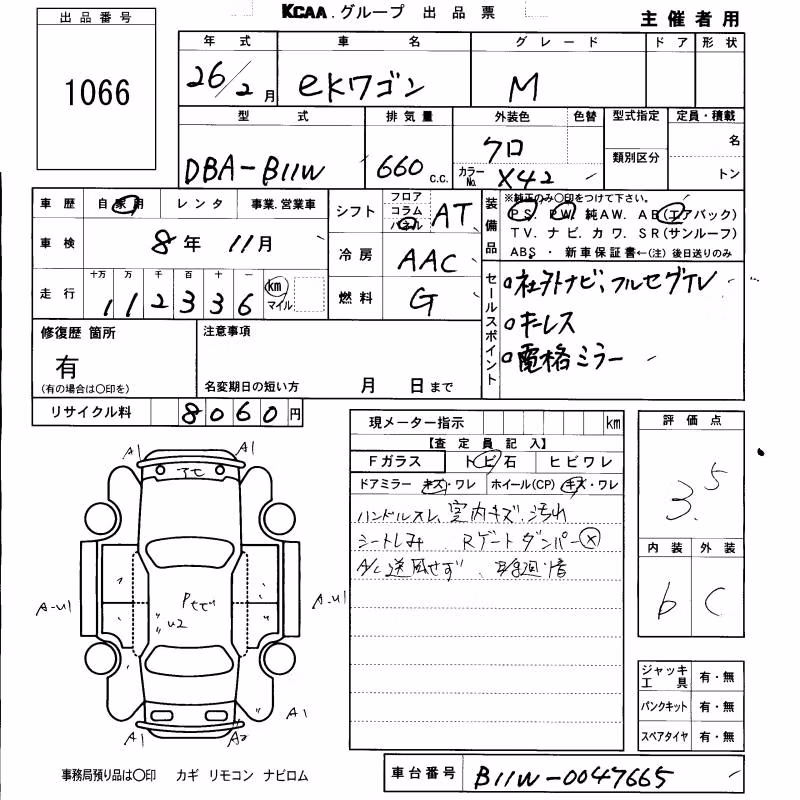 出品番号
1066
KCAA.グループ 出品票
主催者用
年式 車名 グレード ドア 形状
26/2月 eKワゴン M
型式 排気量 外装色 色替 型式指定 定員・積載
DBA-B11W 660c.c. クロ 類別区分 名
カラーNo. X42 トン
車歴 自家用 レンタ 事業.営業車
車検 8年 11月
走行 十万 万 千 百 十 一
112336 km マイル
シフト フロア コラム パネル AT
冷房 AAC
燃料 G
装備品
※純正のみ〇印をつけて下さい。
PS. PW. 純AW. AB(エアバック)
TV. ナビ. カワ. SR(サンルーフ)
ABS ・ 新車保証書←(注)後日送りのみ
セールスポイント
社外ナビ、フルセグTV
キーレス
電格ミラー
修復歴 箇所
有
(有の場合は〇印を)
注意事項
名変期日の短い方 月 日まで
リサイクル料 8060円
現メーター指示 km
【査定員記入】
Fガラス トビ石 ヒビワレ
ドアミラー キズ・ワレ ホイール(CP) キズ・ワレ
ハンドルスレ 室内キズ、汚れ
シートしみ Rゲートダンパー×
A/C送風せず、
評価点
3.5
内装 外装
b C
A1 A1
アセ
A-U1 A-U1
Pセど
U2
A1 A2 A1
ジャッキ工具 有・無
パンクキット 有・無
スペアタイヤ 有・無
事務局預り品は〇印 カギ リモコン ナビロム
車台番号 B11W-0047665